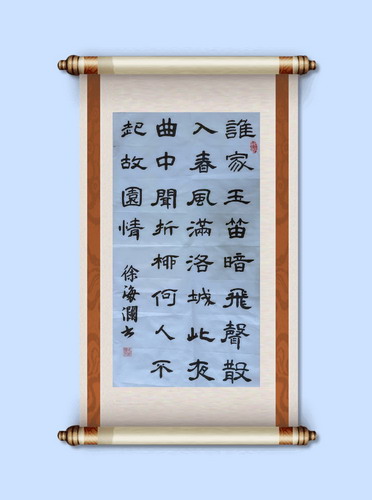 誰家玉笛暗飛聲散
入春風滿洛城此夜
曲中聞折柳何人不
起故園情
徐海瀾书